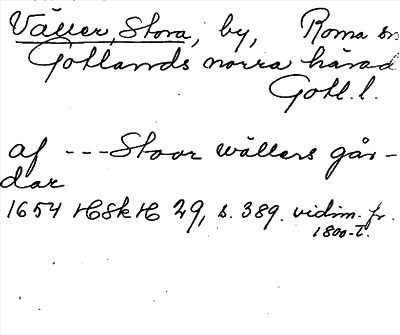 Väller, Stora, by, Roma sn
Gotlands norra härad
Gotl. l.
af --- Stoor wällers går-
dar
1654 HSkH 29, s. 389. vidim. fr.
1800-t.